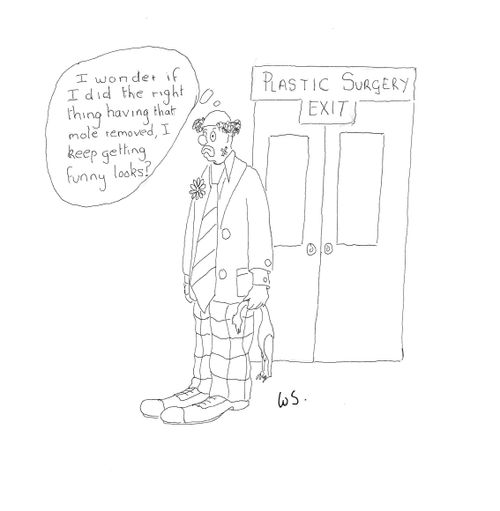 I wonder if
I did the right
thing having that
mole removed, I
keep getting
funny looks?
PLASTIC SURGERY
EXIT
WS.